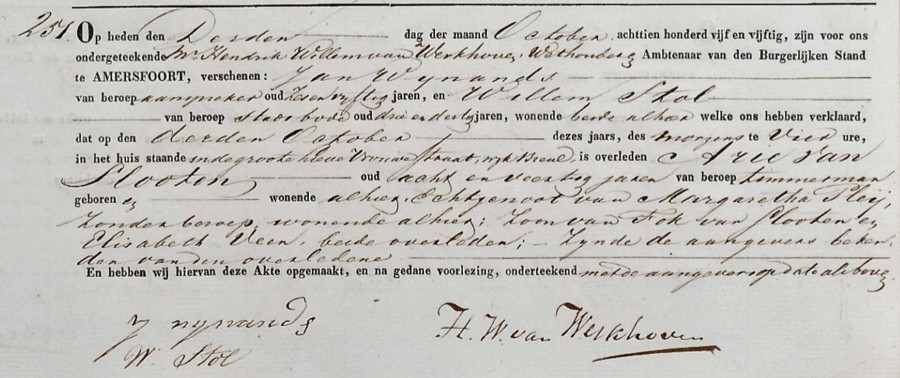 251. Op heden den Derden dag der maand October achttien honderd vijf en vijftig, zijn voor ons
ondergeteekende Mr Hendrik Willem van Werkhoven, Wethouder, Ambtenaar van den Burgerlijken Stand
te AMERSFOORT, verschenen: Jan Wynands
van beroep aanspreker oud zesenvyftig jaren, en Willem Stol
van beroep stadsbode oud drie en dertig jaren, wonende beide alhier welke ons hebben verklaard,
dat op den derden October dezes jaars, des morgens te Vier ure,
in het huis staande in de groote lieve Vrouwe straat, wyk Breul, is overleden Arie van
Slooten oud acht en veertig jaren van beroep timmerman
geboren en wonende alhier; Echtgenoot van Margaretha Pleij,
zonder beroep, wonende alhier; Zoon van Fok van Slooten en
Elisabeth Veen, beide overleden; - Zynde de aangevers beken
den van den overledene
En hebben wij hiervan deze Akte opgemaakt, en na gedane voorlezing, onderteekend met de aangevers op dato als boven
J wynands
W. Stol
H. W. van Werkhoven